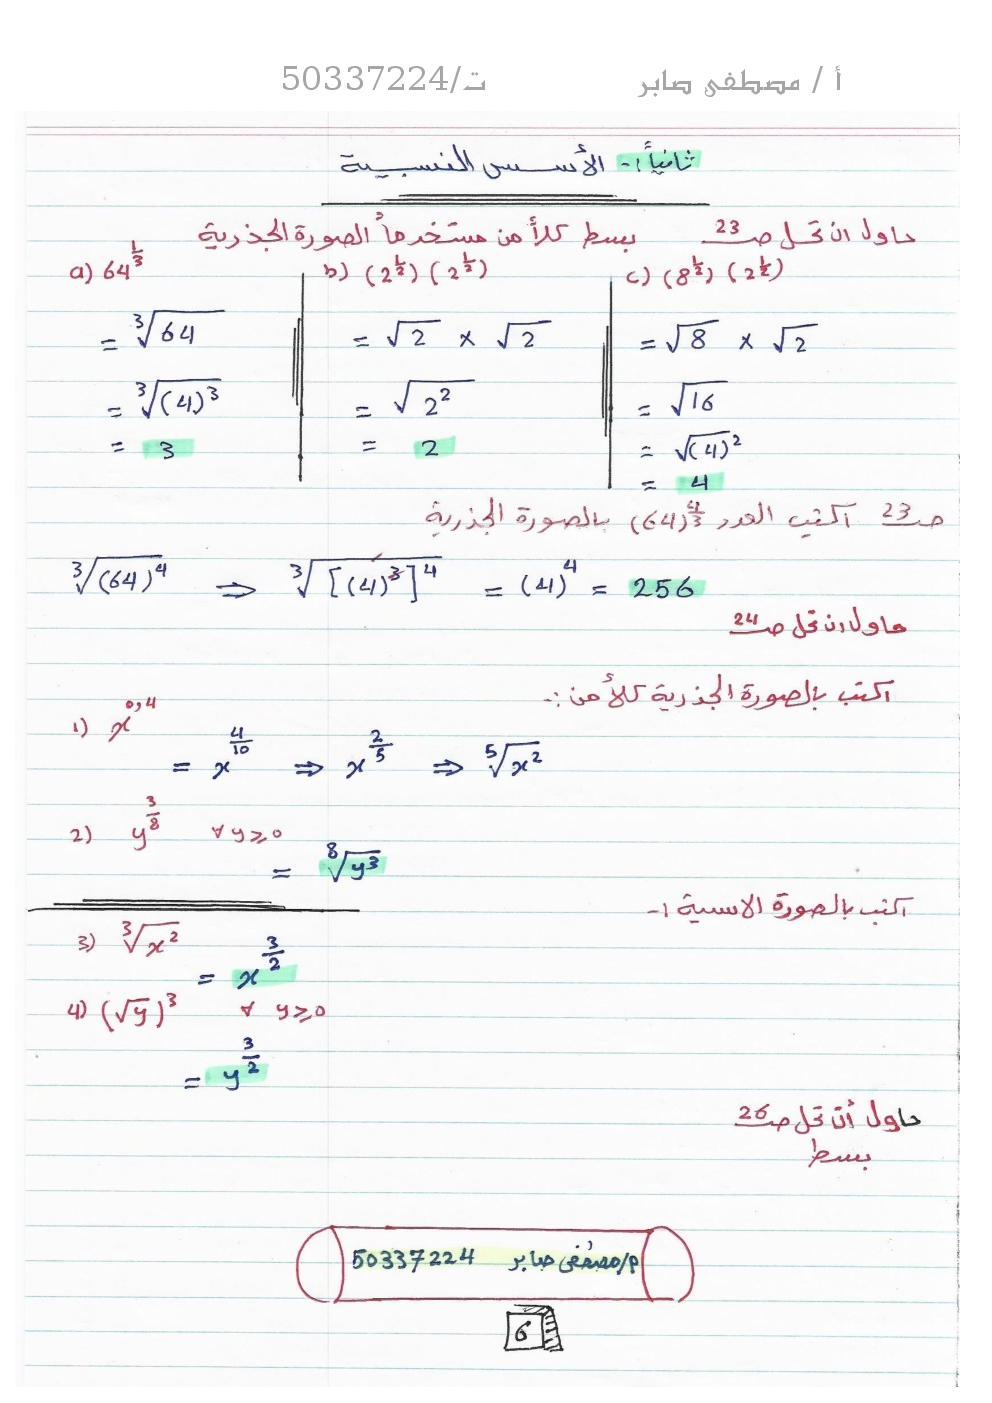 أ / مصطفى صابر ت/50337224
ثانياً :- الأسس النسبية
حاول ان تحل صـ23 بسط كلاً من مستخدماً الصورة الجذرية
a) 64^{\frac{1}{3}} b) (2^{\frac{1}{2}}) (2^{\frac{1}{2}}) c) (8^{\frac{1}{2}}) (2^{\frac{1}{2}})
= ∛64 = √2 × √2 = √8 × √2
= ∛(4)³ = √2² = √16
= 3 = 2 = √(4)²
= 4
صـ23 اكتب العدد (64)^{\frac{4}{3}} بالصورة الجذرية
∛(64)⁴ ⇒ ∛[(4)³]⁴ = (4)⁴ = 256
حاول ان تحل صـ24
اكتب بالصورة الجذرية كلاً من :-
1) x^{0,4}
= x^{\frac{4}{10}} ⇒ x^{\frac{2}{5}} ⇒ ⁵√x²
2) y^{\frac{3}{8}} ∀ y ≥ 0
= ⁸√y³
اكتب بالصورة الاسية :-
3) ∛x²
= x^{\frac{3}{2}}
4) (√y)³ ∀ y ≥ 0
= y^{\frac{3}{2}}
حاول أن تحل صـ26
بسط
م/مصطفى صابر 50337224
6